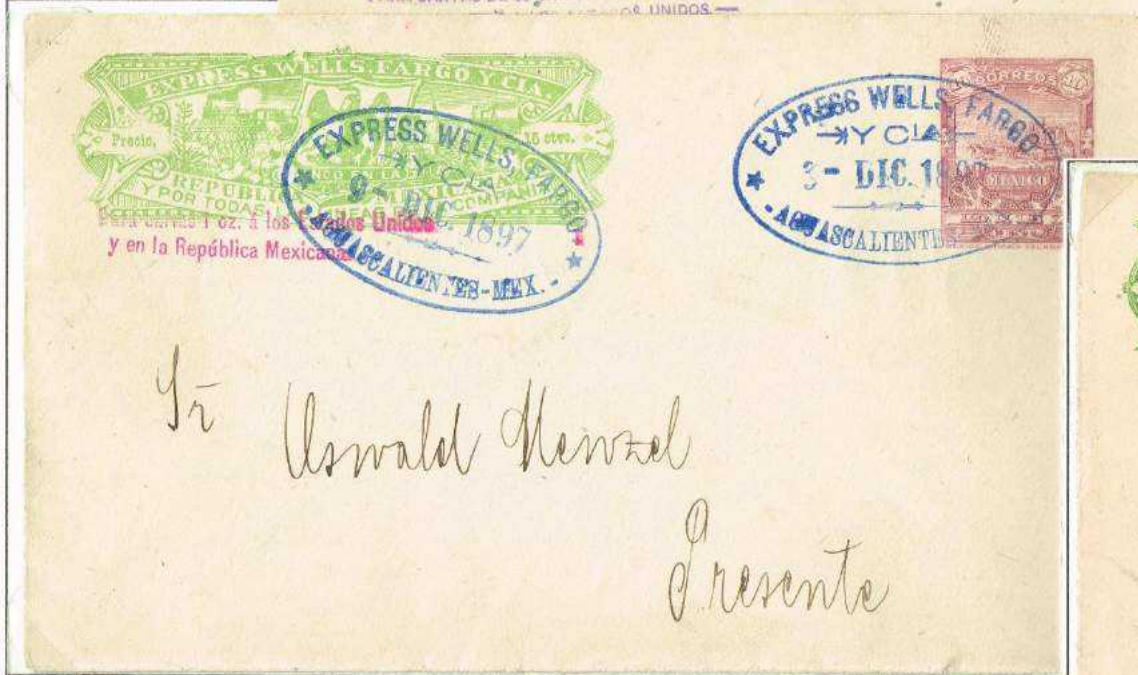 UNIDOS.
EXPRESS WELLS, FARGO Y CIA.
Precio, 15 ctvs.
REPUBLI
Y POR TODAS COMPAÑI
Para cartas 1 oz. á los Estados Unidos
y en la República Mexicana.
EXPRESS WELLS, FARGO
Y CIA
9 - DIC. 1897
- AGUASCALIENTES-MEX. -
CORREOS
EXPRESS WELLS, FARGO
Y CIA
3 - DIC. 1897
- AGUASCALIENTES
Sr
Oswald Menzel
Presente